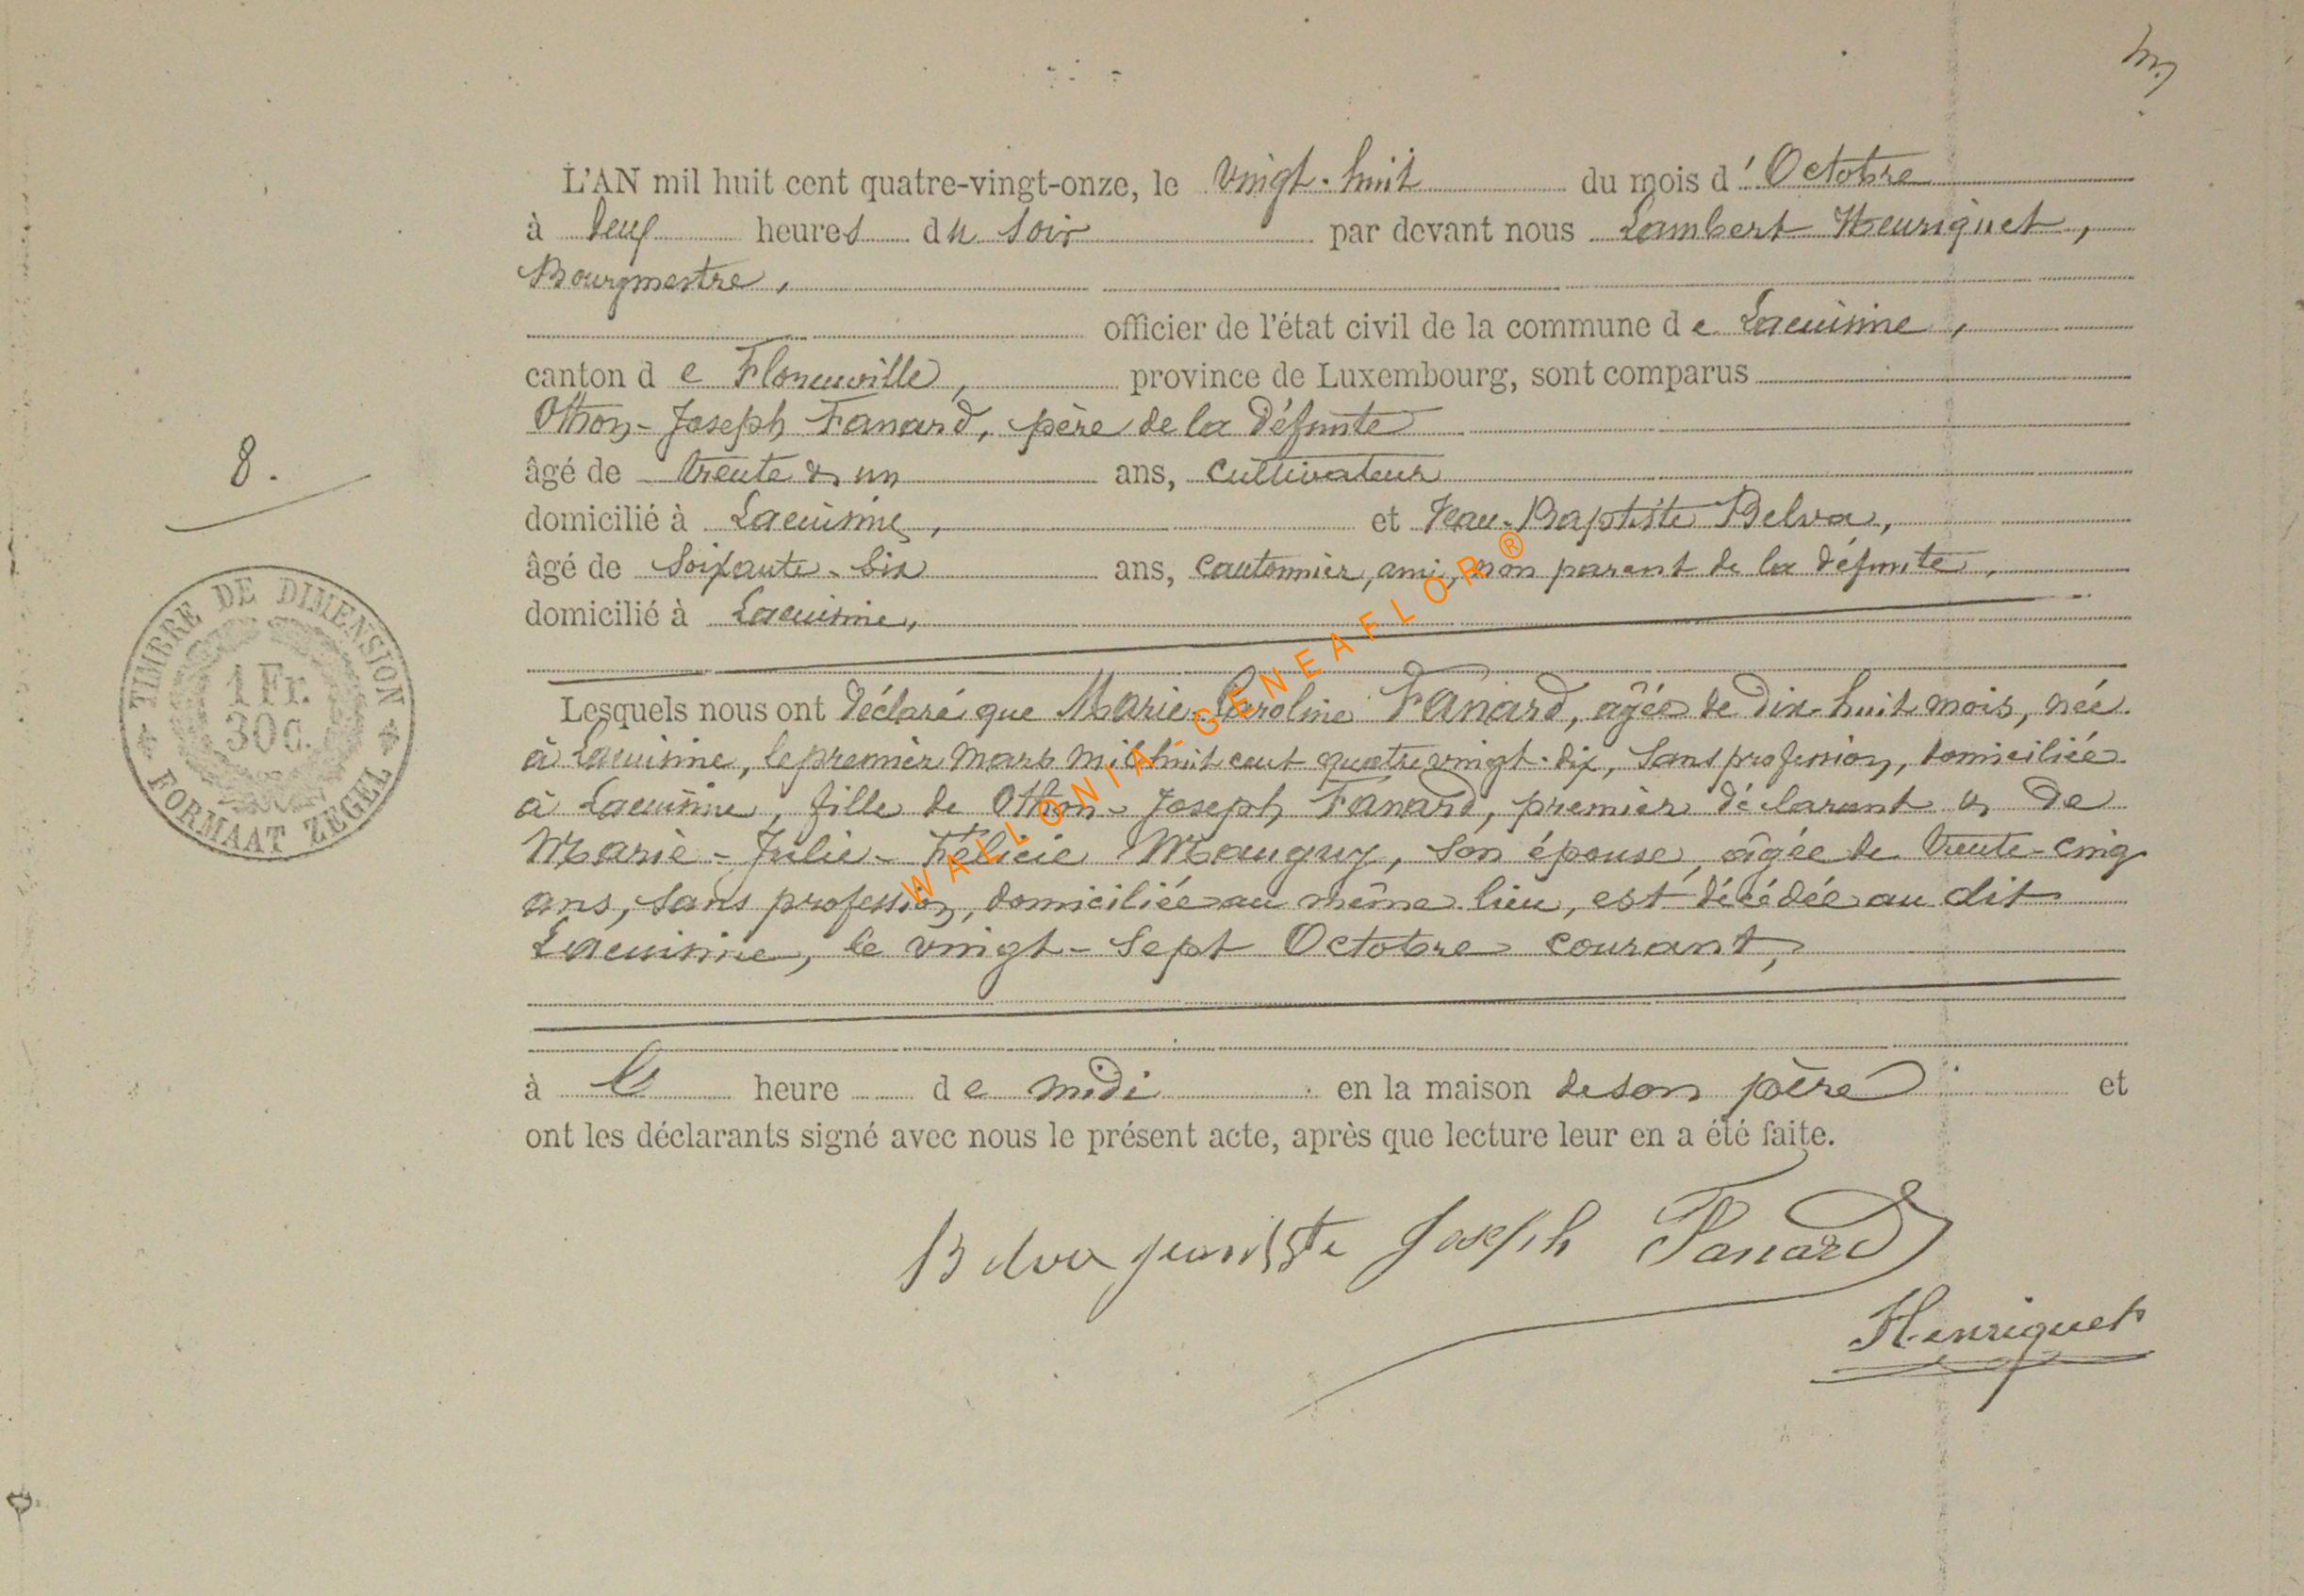 L'AN mil huit cent quatre-vingt-onze, le vingt-huit du mois d'Octobre
à deux heures du soir par devant nous Lambert Henriquet,
Bourgmestre,
officier de l'état civil de la commune de Lacuisine,
canton de Florenville, province de Luxembourg, sont comparus
Othon-Joseph Fanard, père de la défunte
âgé de trente & un ans, cultivateur
domicilié à Lacuisine, et Jean-Baptiste Belva,
8.
âgé de soixante-six ans, cantonnier, ami, non parent de la défunte,
domicilié à Lacuisine,
TIMBRE DE DIMENSION
1 Fr.
30 C.
FORMAAT ZEGEL
Lesquels nous ont déclaré que Marie-Caroline Fanard, âgée de dix-huit mois, née
à Lacuisine, le premier Mars mil huit cent quatre vingt-dix, sans profession, domiciliée
à Lacuisine, fille de Othon-Joseph Fanard, premier déclarant & de
Marie-Julie-Félicie Mauguy, son épouse, âgée de trente-cinq
ans, sans profession, domiciliée au même lieu, est décédée au dit
Lacuisine, le vingt-sept Octobre courant,
à l' heure de midi en la maison de son père et
ont les déclarants signé avec nous le présent acte, après que lecture leur en a été faite.
Belva jean bste Joseph Fanard
Henriquet
WALLONIA-GENEAFLOR®